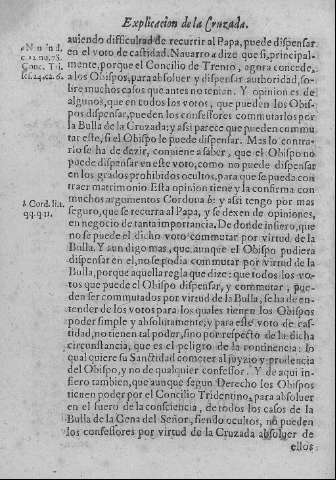 Explicacion de la Cruzada.
auiendo difficultad de recurrir al Papa, puede dispensar
en el voto de castidad. Nauarro a dize que si, principal-
mente, porque el Concilio de Trento, agora concede,
a los Obispos, para absoluer y dispensar authoridad, so-
bre muchos casos que antes no tenian. Y opinion es de
algunos, que en todos los votos, que pueden los Obis-
pos dispensar, pueden los confessores commutarlos por
la Bulla de la Cruzada: y assi parece que pueden commu
tar este, si el Obispo le puede dispensar. Mas lo contra-
rio se ha de dezir, conuiene a saber, que el Obispo no
puede dispensar en este voto, como no puede dispensar
en los grados prohibidos ocultos, para que se pueda con
traer matrimonio. Esta opinion tiene y la confirma con
muchos argumentos Cordoua b: y assi tengo por mas
seguro, que se recurra al Papa, y se dexen de opiniones,
en negocio de tanta importancia. De donde infiero, que
no se puede el dicho voto commutar por virtud de la
Bulla. Y aun digo mas, que aunque el Obispo pudiera
dispensar en el, no se podia commutar por virtud de la
Bulla, porque aquella regla que dize: que todos los vo-
tos que puede el Obispo dispensar, y commutar, pue-
den ser commutados por virtud de la Bulla, se ha de en-
tender de los votos para los quales tienen los Obispos
poder simple y absolutamente, y para este voto de cas-
tidad, no tienen tal poder, sino por respecto de la dicha
circunstancia, que es el peligro de la continencia: lo
qual quiere su Sanctidad cometer al juyzio y prudencia
del Obispo, y no de qualquier confessor. Y de aqui in-
fiero tambien, que aunque segun Derecho los Obispos
tienen poder por el Concilio Tridentino, para absoluer
en el fuero de la consciencia, de todos los casos de la
Bulla de la Cena del Señor, siendo ocultos, no pueden
los confessores por virtud de la Cruzada absoluer de
ellos
a N. in d.
c. 12. nu. 75.
Conc. Tri.
ses. 24. ca. 6.
b Cord. lit.
qq. q 11.